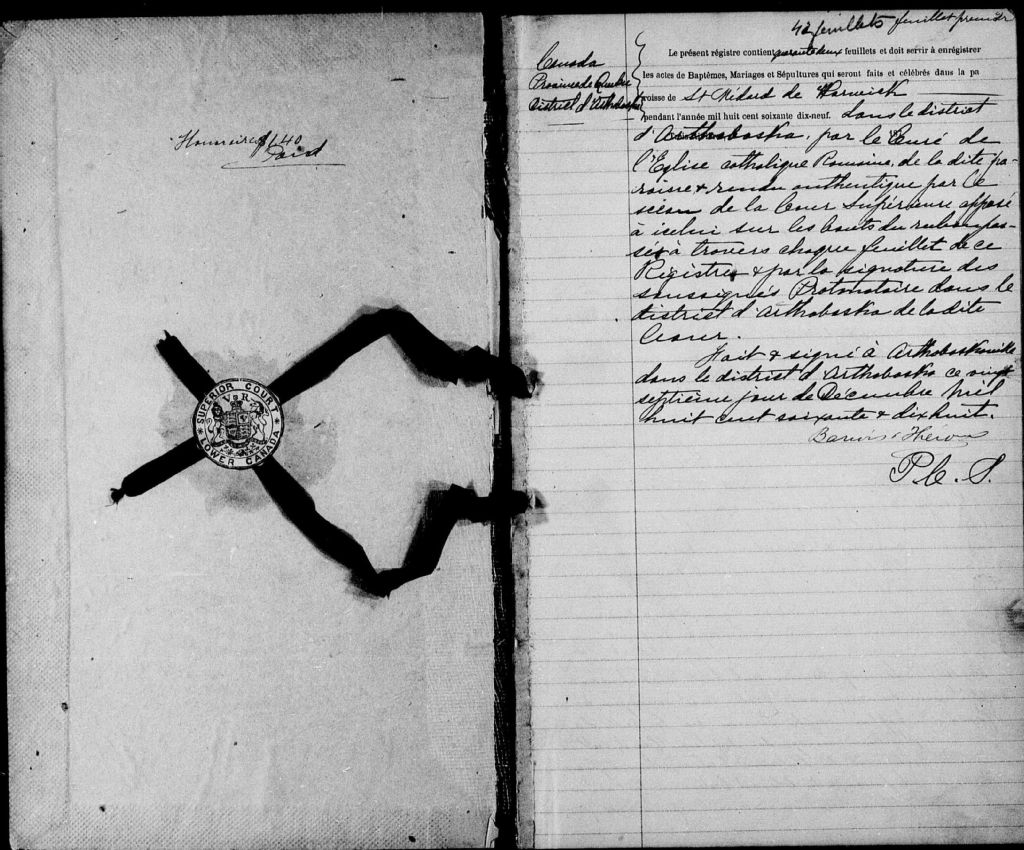 Honoraires $1.40
Paid
SUPERIOR COURT
V R
LOWER CANADA
42 feuillets feuillet premier
Canada
Province de Québec
District d'Arthabaska
Le présent régistre contient quarante deux feuillets et doit servir à enrégistrer
les actes de Baptêmes, Mariages et Sépultures qui seront faits et célébrés dans la pa
roisse de St Médard de Warwick
pendant l'année mil huit cent soixante dix-neuf. dans le district
d'Arthabaska, par le Curé de
l'Eglise catholique Romaine, de la dite pa-
roisse & rendu authentique par le
sceau de la Cour Supérieure apposé
à icelui sur les bouts du ruban pas-
sés à travers chaque feuillet de ce
Registre & par la signature des
soussignés Protonotaire dans le
district d'Arthabaska de la dite
Cour.
Fait & signé à Arthabaskaville
dans le district d'Arthabaska ce vingt
septième jour de Décembre mil
huit cent soixante & dix huit.
Barwis & Théroux
P. C. S.